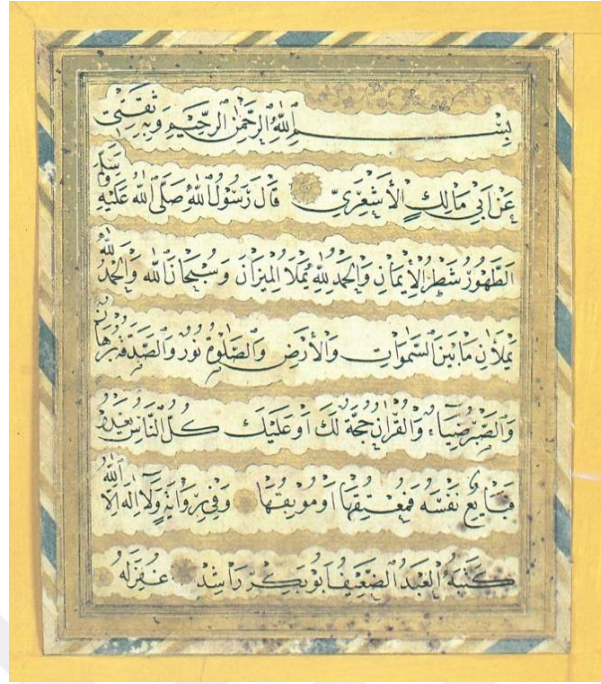 بِسْمِ اللّٰهِ الرَّحْمٰنِ الرَّحِيمِ وَبِهِ ثِقَتِي
عَنْ اَبِي مَالِكٍ الْأَشْعَرِيِّ قَالَ رَسُولُ اللّٰهِ صَلَّى اللّٰهُ عَلَيْهِ وَسَلَّم
اَلطَّهُورُ شَطْرُ الْإِيمَانِ وَالْحَمْدُ لِلّٰهِ تَمْلَأُ الْمِيزَانَ وَسُبْحَانَ اللّٰهِ وَالْحَمْدُ لِلّٰهِ
يَمْلَاٰنِ مَا بَيْنَ السَّمٰوَاتِ وَالْأَرْضِ وَالصَّلٰوةُ نُورٌ وَالصَّدَقَةُ بُرْهَانٌ
وَالصَّبْرُ ضِيَاءٌ وَالْقُرْاٰنُ حُجَّةٌ لَكَ اَوْ عَلَيْكَ كُلُّ النَّاسِ يَغْدُو
فَبَايِعٌ نَفْسَهُ فَمُعْتِقُهَا اَوْ مُوبِقُهَا وَفِي رِوَايَةٍ وَلَا اِلٰهَ اِلَّا اللّٰهُ
كَتَبَهُ الْعَبْدُ الضَّعِيفُ اَبُو بَكِرْ رَاشِدْ غُفِرَ لَهُ